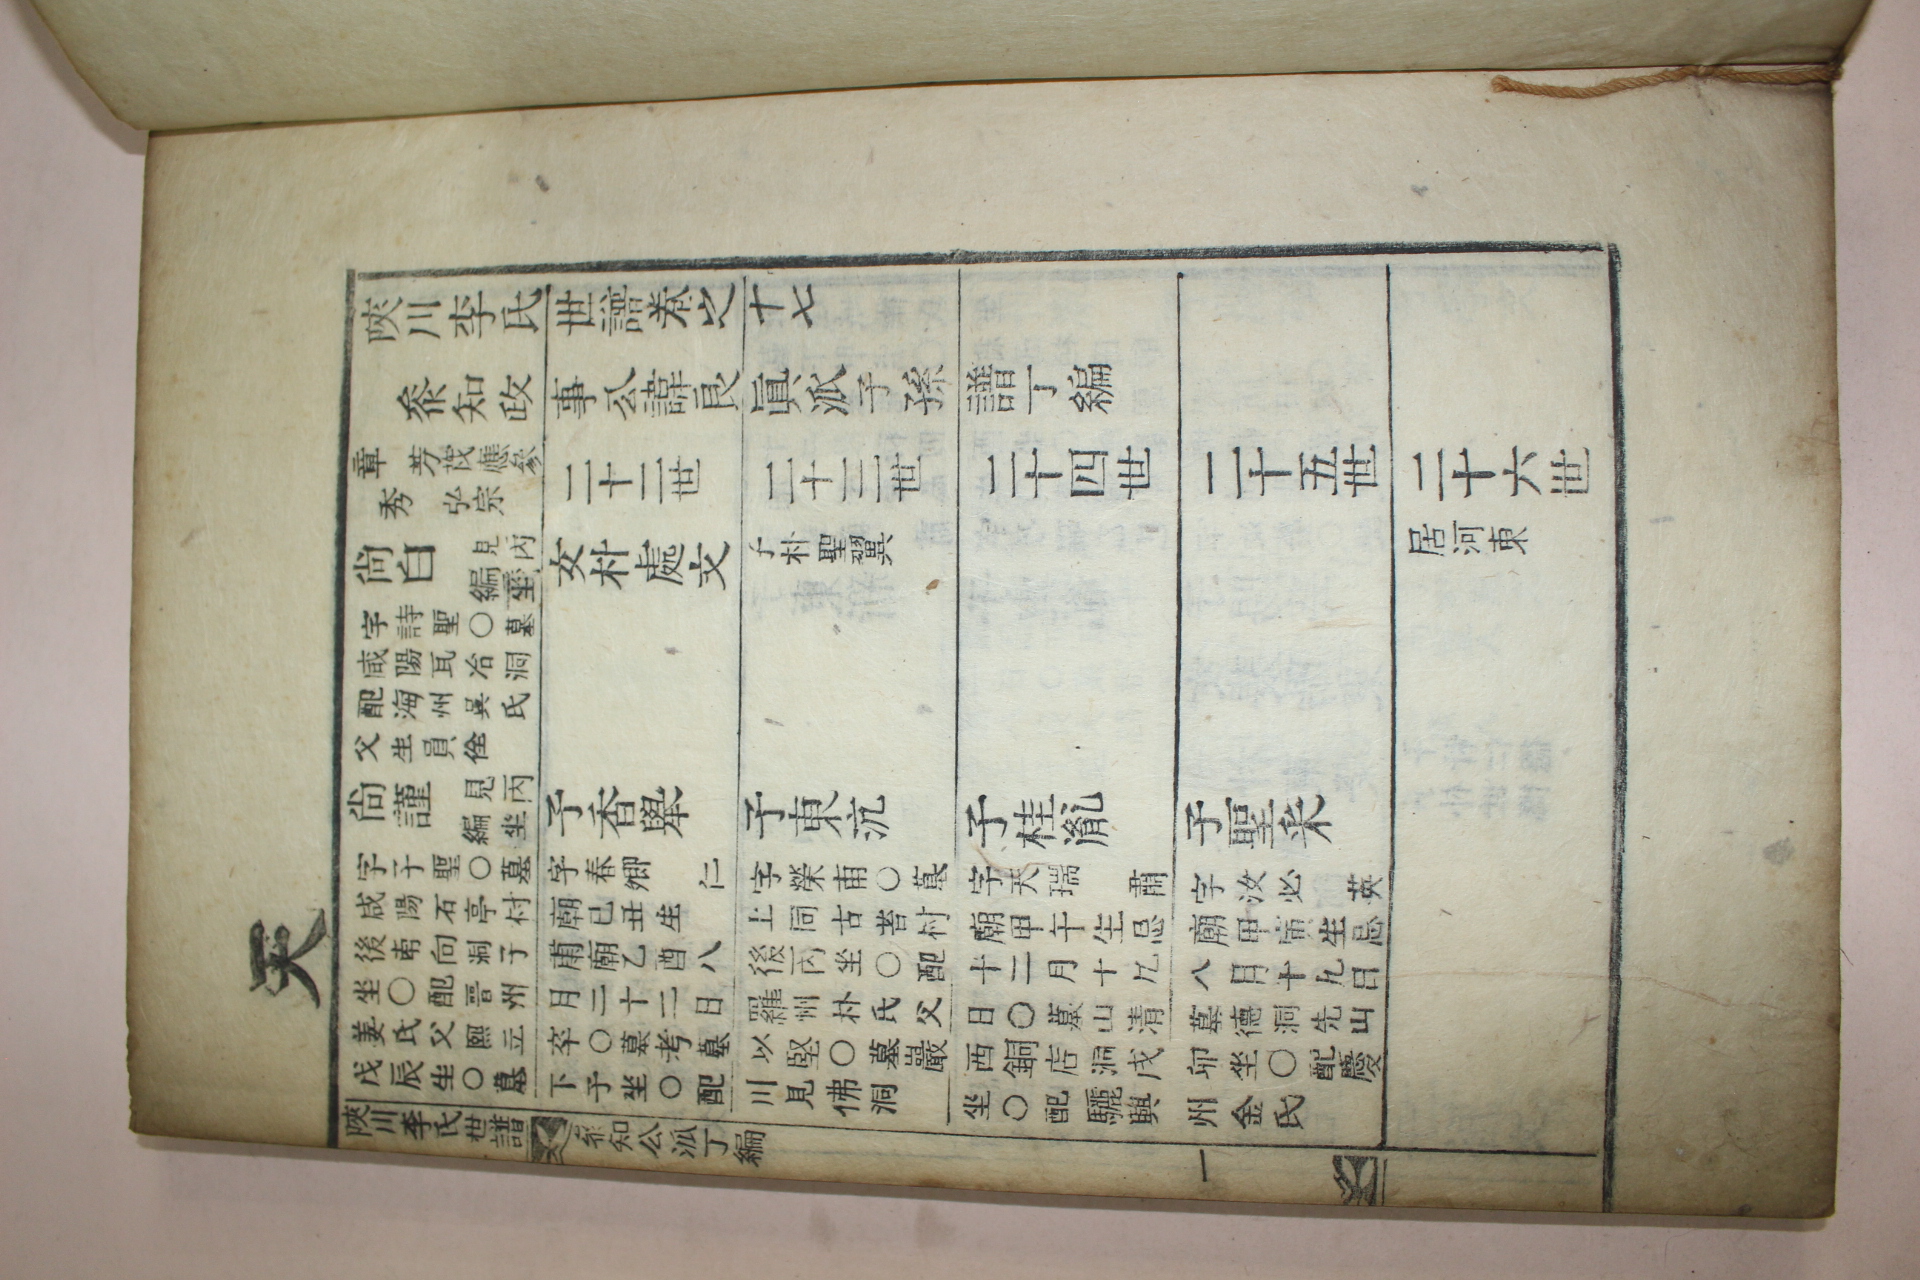 陜川李氏世譜卷之十七
叅知政事公諱良眞派子孫譜丁編
章芳茂應參
秀弘宗
二十二世
二十三世
二十四世
二十五世
二十六世
尙白
見丙編
字詩聖〇墓
咸陽瓦冶洞
配海州吳氏
父生員佺
女朴處文
子朴聖翼
居河東
尙謹
見丙編
字子聖〇墓
咸陽石亭村
後南向洞子
坐〇配晉州
姜氏父熙立
戊辰生〇墓
子香擧
字春卿 仁
廟己丑生
肅廟乙酉八
月二十二日
卒〇墓考墓
下子坐〇配
子東沆
字榮甫〇墓
上同古苔村
後丙坐〇配
羅州朴氏父
以堅〇墓巖
川見佛洞
子桂胤
字天瑞 肅
廟甲午生忌
十二月十
日〇墓山清
西銅店洞戌
坐〇配驪興
子聖采
字汝必 英
廟甲寅生忌
八月十九日
墓德洞先山
卯坐〇配慶
州金氏
陜川李氏世譜
叅知公派丁編
一
天